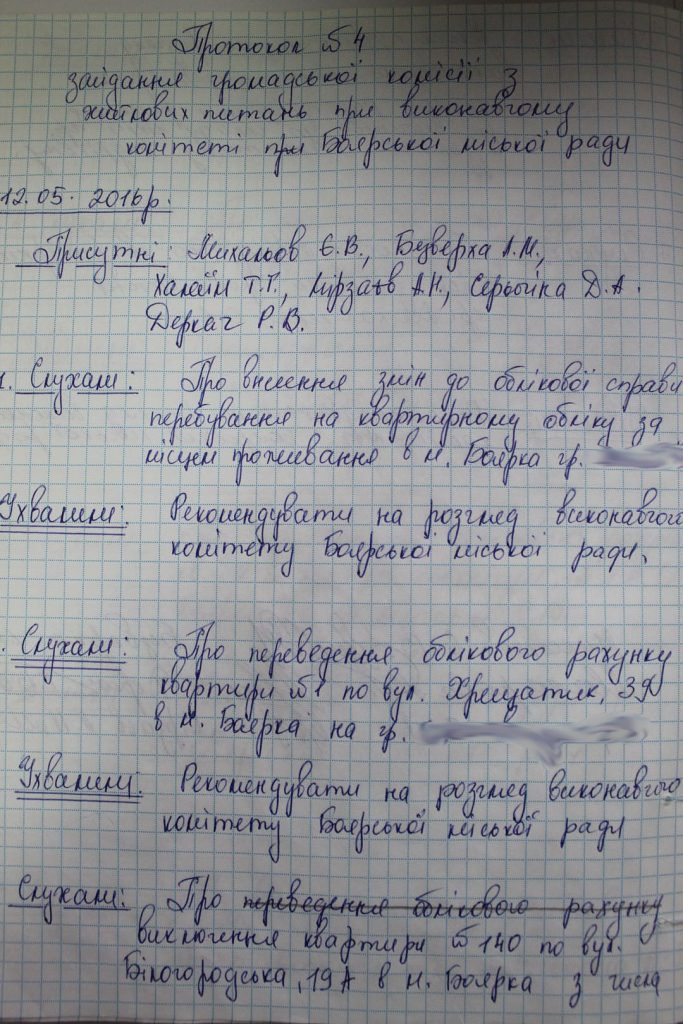 Протокол №4
засідання громадської комісії з
житлових питань при виконавчому
комітеті при Боярської міської ради
12.05. 2016р.
Присутні: Михальов Є.В., Безверха Л.М.,
Халаїм Т.Т., Мірзаєв А.Н., Серьогіна Д.А.
Деркач Р.В.
1. Слухали: Про внесення змін до облікової справи
перебування на квартирному обліку за
місцем проживання в м. Боярка гр.
Ухвалили: Рекомендувати на розгляд виконавчого
комітету Боярської міської ради.
Слухали: Про переведення облікового рахунку
квартири №1 по вул. Хрещатик,
в м. Боярка на гр.
Ухвалили: Рекомендувати на розгляд виконавчого
комітету Боярської міської ради
Слухали: Про переведення облікового рахунку
виключення квартири №140 по вул.
Білогородська, 19А в м. Боярка з числа